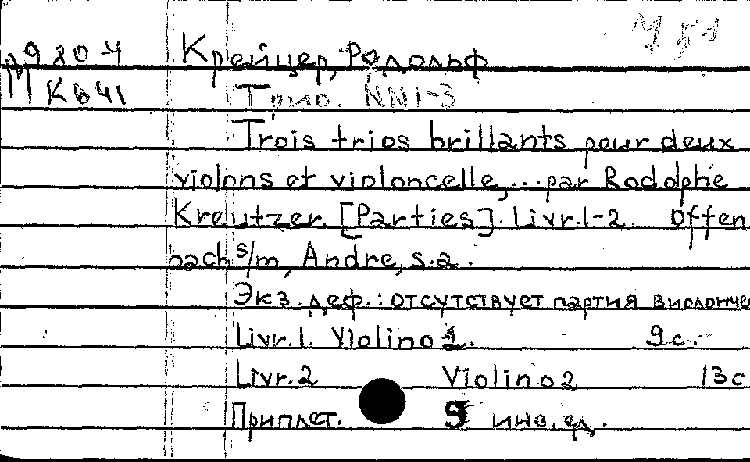 9804 Крейцер, Родольф
К641 Трио. NN1-3
Trois trios brillants pour deux
violons et violoncelle,...par Rodolphe
Kreutzer. [Parties]. Livr.1-2. Offen
bach s/m, Andre, s.a.
Экз. деф.: отсутствует партия виолонче
Livr.1. Violino 2. 9с.-
Livr.2 Violino 2 13с
Приплет. 9 инв.ед.